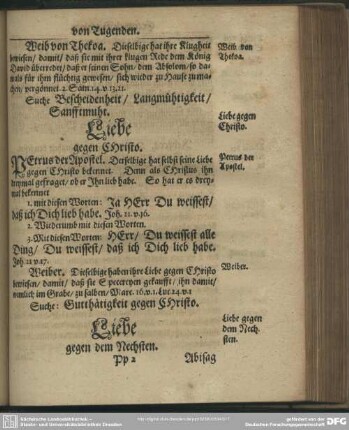 von Tugenden.
Weib von Thekoa. Dieselbige hat ihre Klugheit
bewiesen/ damit/ daß sie mit ihrer klugen Rede dem König
David überredet/ daß er seinen Sohn/ dem Absolom/ so da-
mals für ihm flüchtig gewesen/ sich wieder zu Hause zu ma-
chen/ vergönnet. 2. Sam. 14. v. 13. 21.
Weib von
Thekoa.
Suche Bescheidenheit/ Langmühtigkeit/
Sanfftmuht.
Liebe
gegen CHristo.
Liebe gegen
Christo.
Petrus der Apostel. Derselbige hat selbst seine Liebe
gegen CHristo bekennet. Denn als CHristus ihn
dreymal gefraget/ ob er Jhn lieb habe. So hat er es drey-
mal bekennet
Petrus der
Apostel.
1. mit diesen Worten: Ja HErr Du weissest/
daß ich Dich lieb habe. Joh. 21. v. 16.
2. Wiederumb mit diesen Worten.
3. Mit diesen Worten: HErr/ Du weissest alle
Ding/ Du weissest/ daß ich Dich lieb habe.
Joh. 21. v. 17.
Weiber. Dieselbige haben ihre Liebe gegen CHristo
bewiesen/ damit/ daß sie Specereyen gekaufft/ ihn damit/
nemlich im Grabe/ zu salben/ Marc. 16. v. 1. Luc. 24. v. 1
Weiber.
Suche: Gutthätigkeit gegen CHristo.
Liebe
gegen dem Nechsten.
Liebe gegen
dem Nech-
sten.
Pp 2
Abisag
Sächsische Landesbibliothek –
Staats- und Universitätsbibliothek Dresden
gefördert von der
Deutschen Forschungsgemeinschaft
DFG